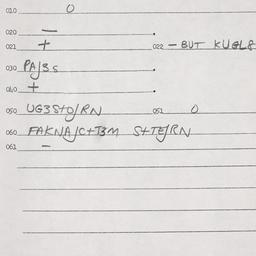 010 0
020 —
021 + 022 – BUT KUGL8
030 PA/3S
040 +
050 UG3S+O/RN 051 0
060 FAKNA/C+TBM S+TE/RN
061 –